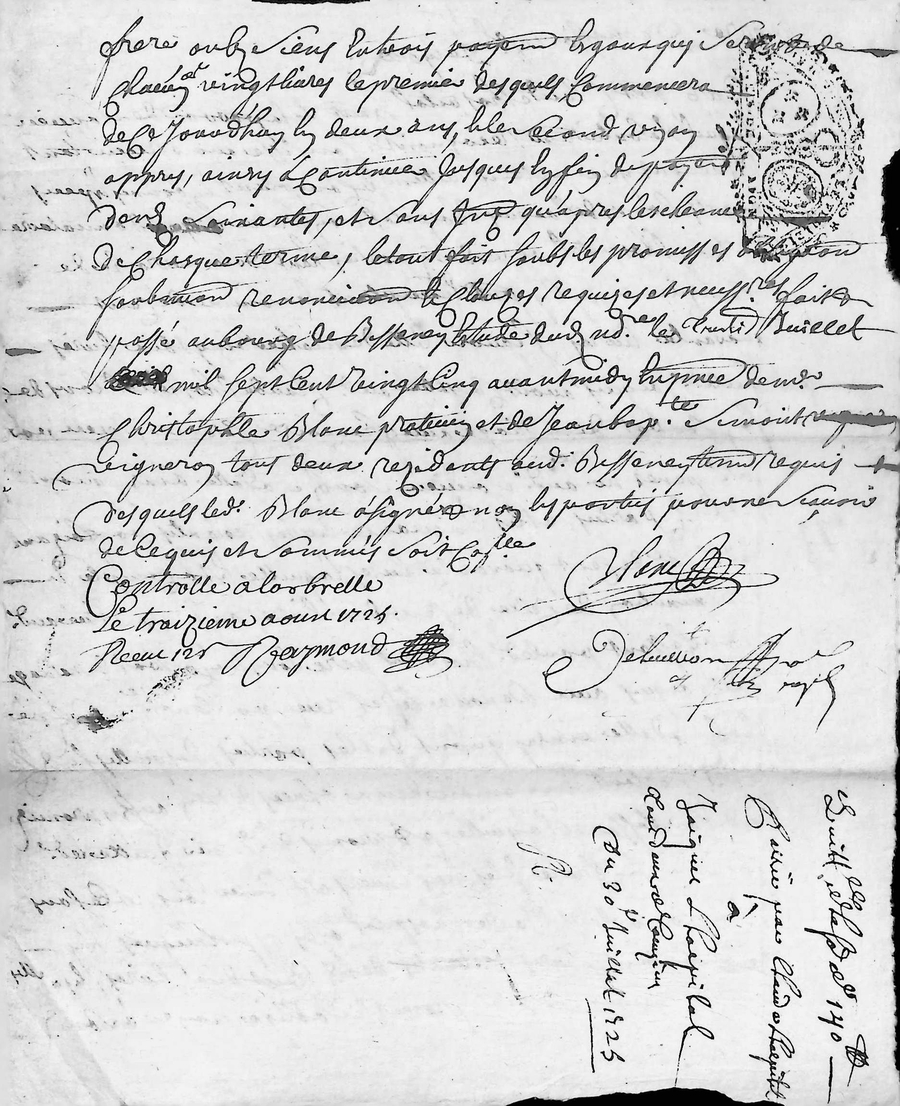 frere ou les siens en trois payemt egaux qui seront de
chacun vingt livres le premier desquels commencera
de ce jourd'huy en deux ans, et le second un an
appres, ainsy a continuer jusques en fin de payemt
desd. soixantes, et sans qu'apres lescheance
de chasque terme, le tout fait soubs les promisses obligaon
soubmion renonciaon et clauses requises et necessres fait et
passé au bourg de Besseney estude dud. nore le trente Juillet
mil sept cent vingt cinq avant midy en pnce de mr
Christophle Blanc praticien et de Jean bapte Simont
vigneron tous deux rezidants aud. Besseney temd requis
desquels led. Blanc a signé et non les parties pour ne scavoir
de ce enquis et sommés soit Conlle
Controlle a larbrelle
Le traizieme aoust 1725.
Receu 12s Raymond
Blanc
nore royal
Quittce et de 140 tt
Passée par Claude Lhospital
a
Jacques Lhospital
Du 30e Juillet 1725